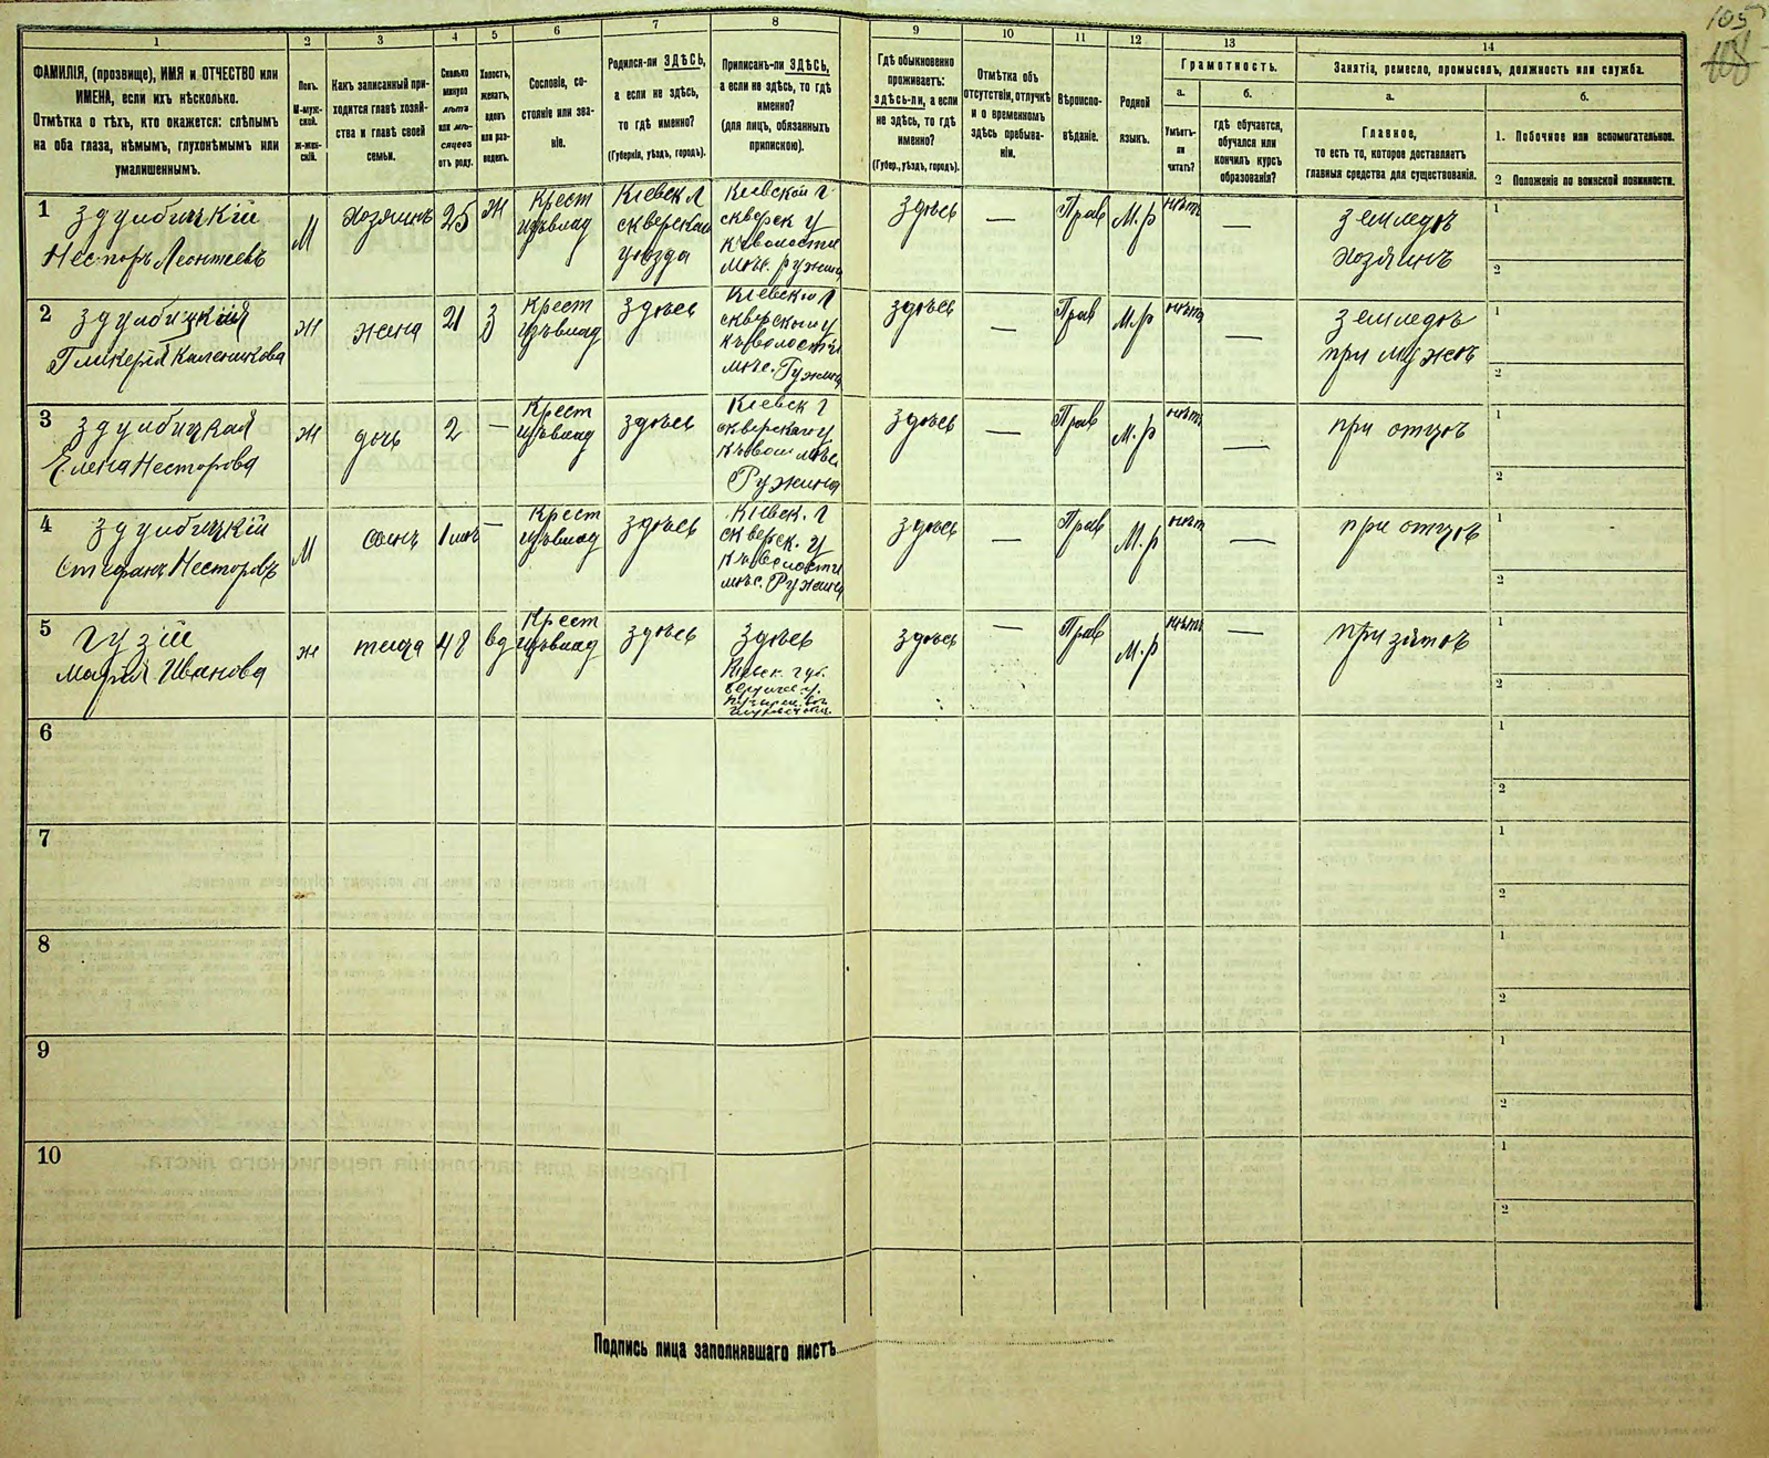 105
108
1 2 3 4 5 6 7 8 9 10 11 12 13 14
ФАМИЛІЯ, (прозвище), ИМЯ и ОТЧЕСТВО или
ИМЕНА, если ихъ нѣсколько.
Отмѣтка о тѣхъ, кто окажется: слѣпымъ
на оба глаза, нѣмымъ, глухонѣмымъ или
умалишеннымъ.
Полъ.
М-муж-
ской.
ж-жен-
скій.
Какъ записанный при-
ходится главѣ хозяй-
ства и главѣ своей
семьи.
Сколько
минуло
лѣтъ
или мѣ-
сяцевъ
отъ роду.
Холостъ,
женатъ,
вдовъ
или раз-
веденъ.
Сословіе, со-
стояніе или зва-
ніе.
Родился-ли ЗДѢСЬ,
а если не здѣсь,
то гдѣ именно?
(Губернія, уѣздъ, городъ).
Приписанъ-ли ЗДѢСЬ,
а если не здѣсь, то гдѣ
именно?
(для лицъ, обязанныхъ
припискою).
Гдѣ обыкновенно
проживаетъ:
здѣсь-ли, а если
не здѣсь, то гдѣ
именно?
(Губер., уѣздъ, городъ).
Отмѣтка объ
отсутствіи, отлучкѣ
и о временномъ
здѣсь пребыва-
ніи.
Вѣроиспо-
вѣданіе.
Родной
языкъ.
Грамотность.
а.
Умѣетъ-
ли
читать?
б.
гдѣ обучается,
обучался или
кончилъ курсъ
образованія?
Занятія, ремесло, промыселъ, должность или служба.
а.
Главное,
то есть то, которое доставляетъ
главныя средства для существованія.
б.
1. Побочное или вспомогательное.
2 Положеніе по воинской повинности.
1 Здулбицкій
Несторъ Леонтеевъ
М
Хозяинъ
25
Ж
Крест
Кіевск
сквирской
уѣзда
Кіевской г
скверск у
мѣс. Ружина
здѣсь
—
Прав
М.р
нѣтъ
—
земледѣ
хозяинъ
1
2
2 Здулбицкая
Гликерія Каленикова
Ж
жена
21
З
Крест
здѣсь
мѣс. Ружина
здѣсь
—
Прав
М.р
нѣтъ
—
земледѣ
при мужѣ
1
2
3 Здулбицкая
Елена Несторова
Ж
дочь
2
—
Крест
здѣсь
Кіевск г
Ружина
здѣсь
—
Прав
М.р
нѣтъ
—
при отцѣ
1
2
4 Здулбицкій
Стефанъ Несторовъ
М
сынъ
—
Крест
здѣсь
Кіевск. г
скверск. у
мѣс. Ружина
здѣсь
—
Прав
М.р
нѣтъ
—
при отцѣ
1
2
5 Гузій
Марія Иванова
ж
теща
48
вд
Крест
здѣсь
здѣсь
Кіевск. губ.
здѣсь
—
Прав
М.р
нѣтъ
—
при зятѣ
1
2
6
1
2
7
1
2
8
1
2
9
1
2
10
1
2
Подпись лица заполнявшаго листъ